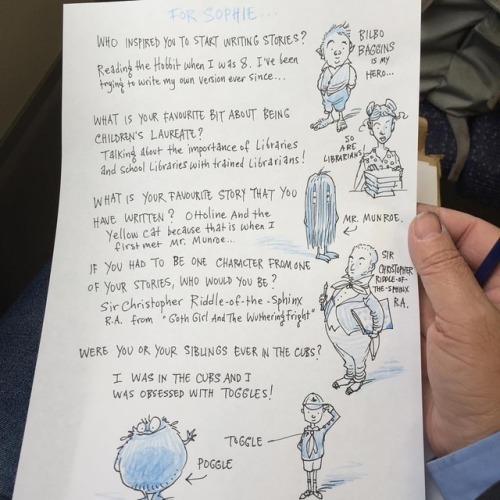 FOR SOPHIE...
WHO INSPIRED YOU TO START WRITING STORIES?
Reading the Hobbit when I was 8. I've been
trying to write my own version ever since...
BILBO
BAGGINS
IS MY
HERO...
WHAT IS YOUR FAVOURITE BIT ABOUT BEING
CHILDREN'S LAUREATE?
Talking about the importance of Libraries
and School Libraries with trained Librarians!
SO
ARE
LIBRARIANS
WHAT IS YOUR FAVOURITE STORY THAT YOU
HAVE WRITTEN? Ottoline And the
Yellow Cat because that is when I
first met Mr. Munroe...
MR. MUNROE.
IF YOU HAD TO BE ONE CHARACTER FROM ONE
OF YOUR STORIES, WHO WOULD YOU BE?
Sir Christopher Riddle-of-the-Sphinx
R.A. from "Goth Girl And The Wuthering Fright"
SIR
CHRISTOPHER
RIDDLE-OF-
THE-SPHINX
R.A.
WERE YOU OR YOUR SIBLINGS EVER IN THE CUBS?
I WAS IN THE CUBS AND I
WAS OBSESSED WITH TOGGLES!
TOGGLE
POGGLE